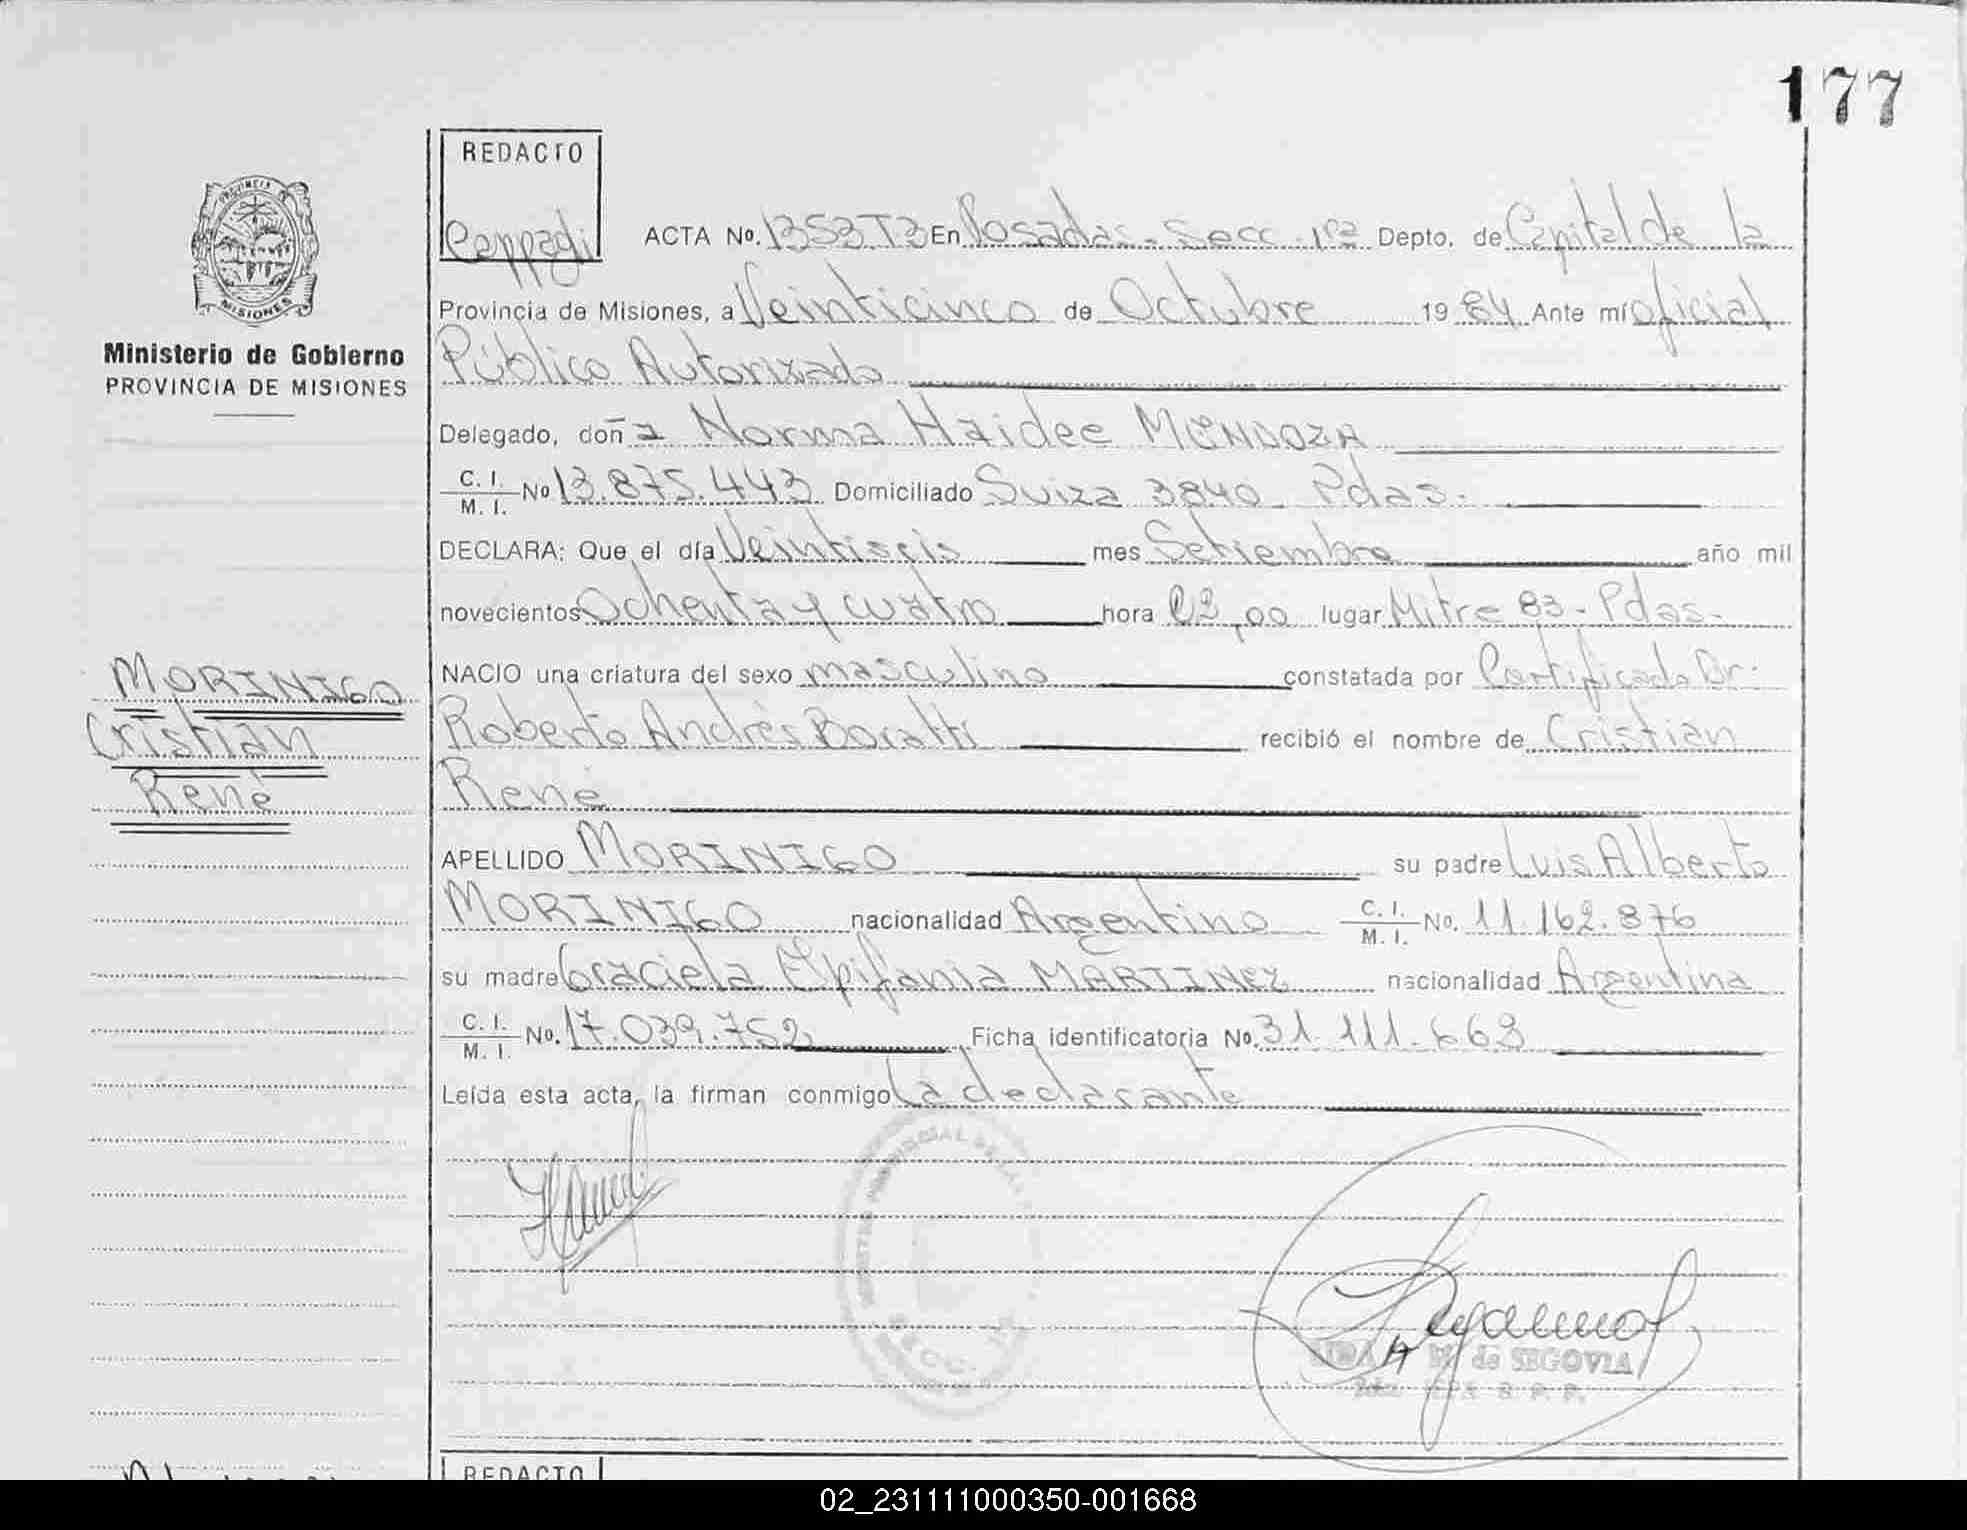 177
REDACTO
Ceppagi
ACTA No. 1353 T3 En Posadas - Secc - 1ra Depto. de Capital de la
Provincia de Misiones, a Veinticinco de Octubre 19 84 Ante mí oficial
Público Autorizado
Delegado, doña Norma Haidee MENDOZA
C. I.
M. I. No 13.875.443 Domiciliado Suiza 3840 Pdas.
DECLARA: Que el día Veintiseis mes Setiembre año mil
novecientos Ochenta y cuatro hora 02,00 lugar Mitre 83 - Pdas-
NACIO una criatura del sexo masculino constatada por Certificado Dr.
Roberto Andrés recibió el nombre de Cristian
René
APELLIDO MORINIGO su padre Luis Alberto
MORINIGO nacionalidad Argentino C. I. M. I. No. 11.162.876
su madre Graciela Epifania MARTINEZ nacionalidad Argentina
C. I.
M. I. No. 17.039.752 Ficha identificatoria No. 31.111.663
Leída esta acta, la firman conmigo La declarante
PROVINCIA DE
MISIONES
Ministerio de Gobierno
PROVINCIA DE MISIONES
MORINIGO
Cristian
René
SECC. 1ª
de SEGOVIA
REDACTO
02_231111000350-001668